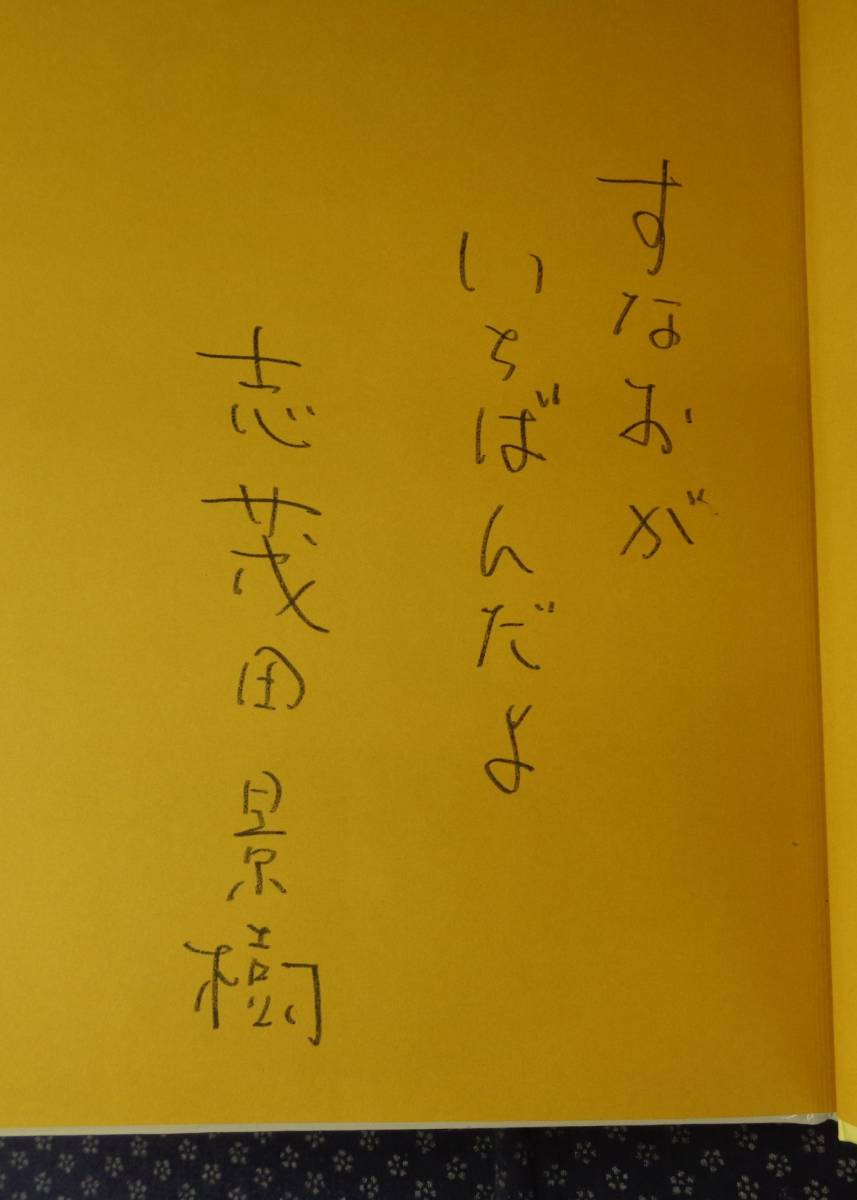 すなおが
いちばんだよ
志茂田景樹